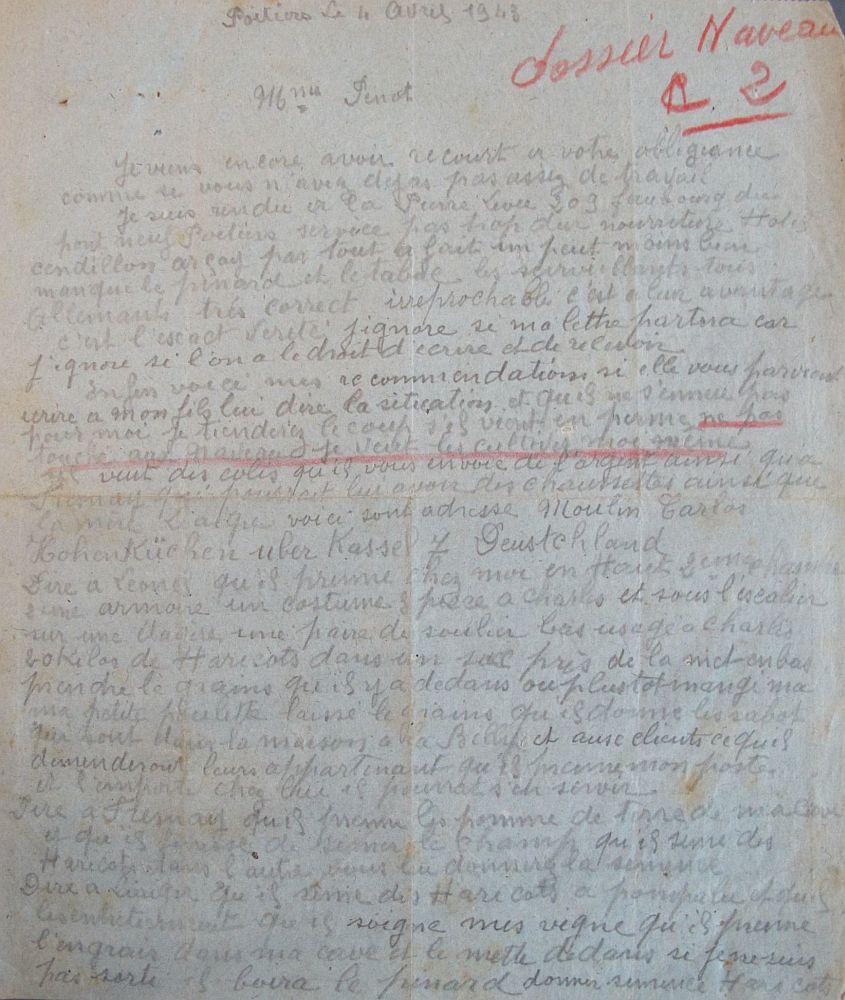 Poitiers Le 4 Avril 1943
dossier Naveau
R 2
Mme Penot
Je viens encore avoir recourt a votre obligeance
comme se vous n'avez dejas pas assez de travail
Je suis rendu a La Pierre Levee 309 faubourg du
pont neuf Poitiers service pas trop dur nourriture
cendillon arçay pas tout a fait un peut moins bien
manque le pinard et le tabac les surveillants tous
Allemants très correct irreprochable c'est a leur avantage
c'est l'escact verité j'ignore se ma lettre partira car
j'ignore si l'on a le droit d'ecrire et de
Enfin voici mes recommendations si elle vous parvient
ecrire a mon fils lui dire la sitecation et qu'il ne s'ennuie pas
pour moi je tienderez le coup s'il vient en perme ne pas
touche aux naveaux je veut les cultiver moi même
veut des colis qu'il vous envoie de l'argent ainsi qu'a
Fresnay qui pourrait lui avoir des chaussettes ainsi que
la mère Liaigre voici sont adresse Moulin Carlos
HohenKüchen uber Kassel 7 Deustchland
Dire a Leonel qu'il prenne chez moi en Haut 2eme chambre
2eme armoire un costume 3 piece a Charles et sous l'escalier
sur une etagere une paire de soulier bas usagé a Charles
kilos de Haricots dans un sac près de la met en bas
prendre le grains qu'il y a dedans ou plustot mangé ma
ma petite poulette laissé le grains qu'il donne les sabot
qui sont dans la maison a la et ause clients ce qu'il
demenderont leurs appartenant qu'il prenne mon poste
et l'emporte chez lui il pourrat s'en servir
Dire a Fresnay qu'il prenne les pomme de terre de ma cave
et qu'il finisse de semer le champ qu'il seme des
Haricots dans l'autre vous lui donnerez la semence
Dire a Liaigre qu'il sème des Haricots a
les entretiennent qu'il soigne mes vigne qu'il prenne
l'engrais dans ma cave et le mette dedans si je ne suis
pas sorti il boira le pinard donner semence Haricots